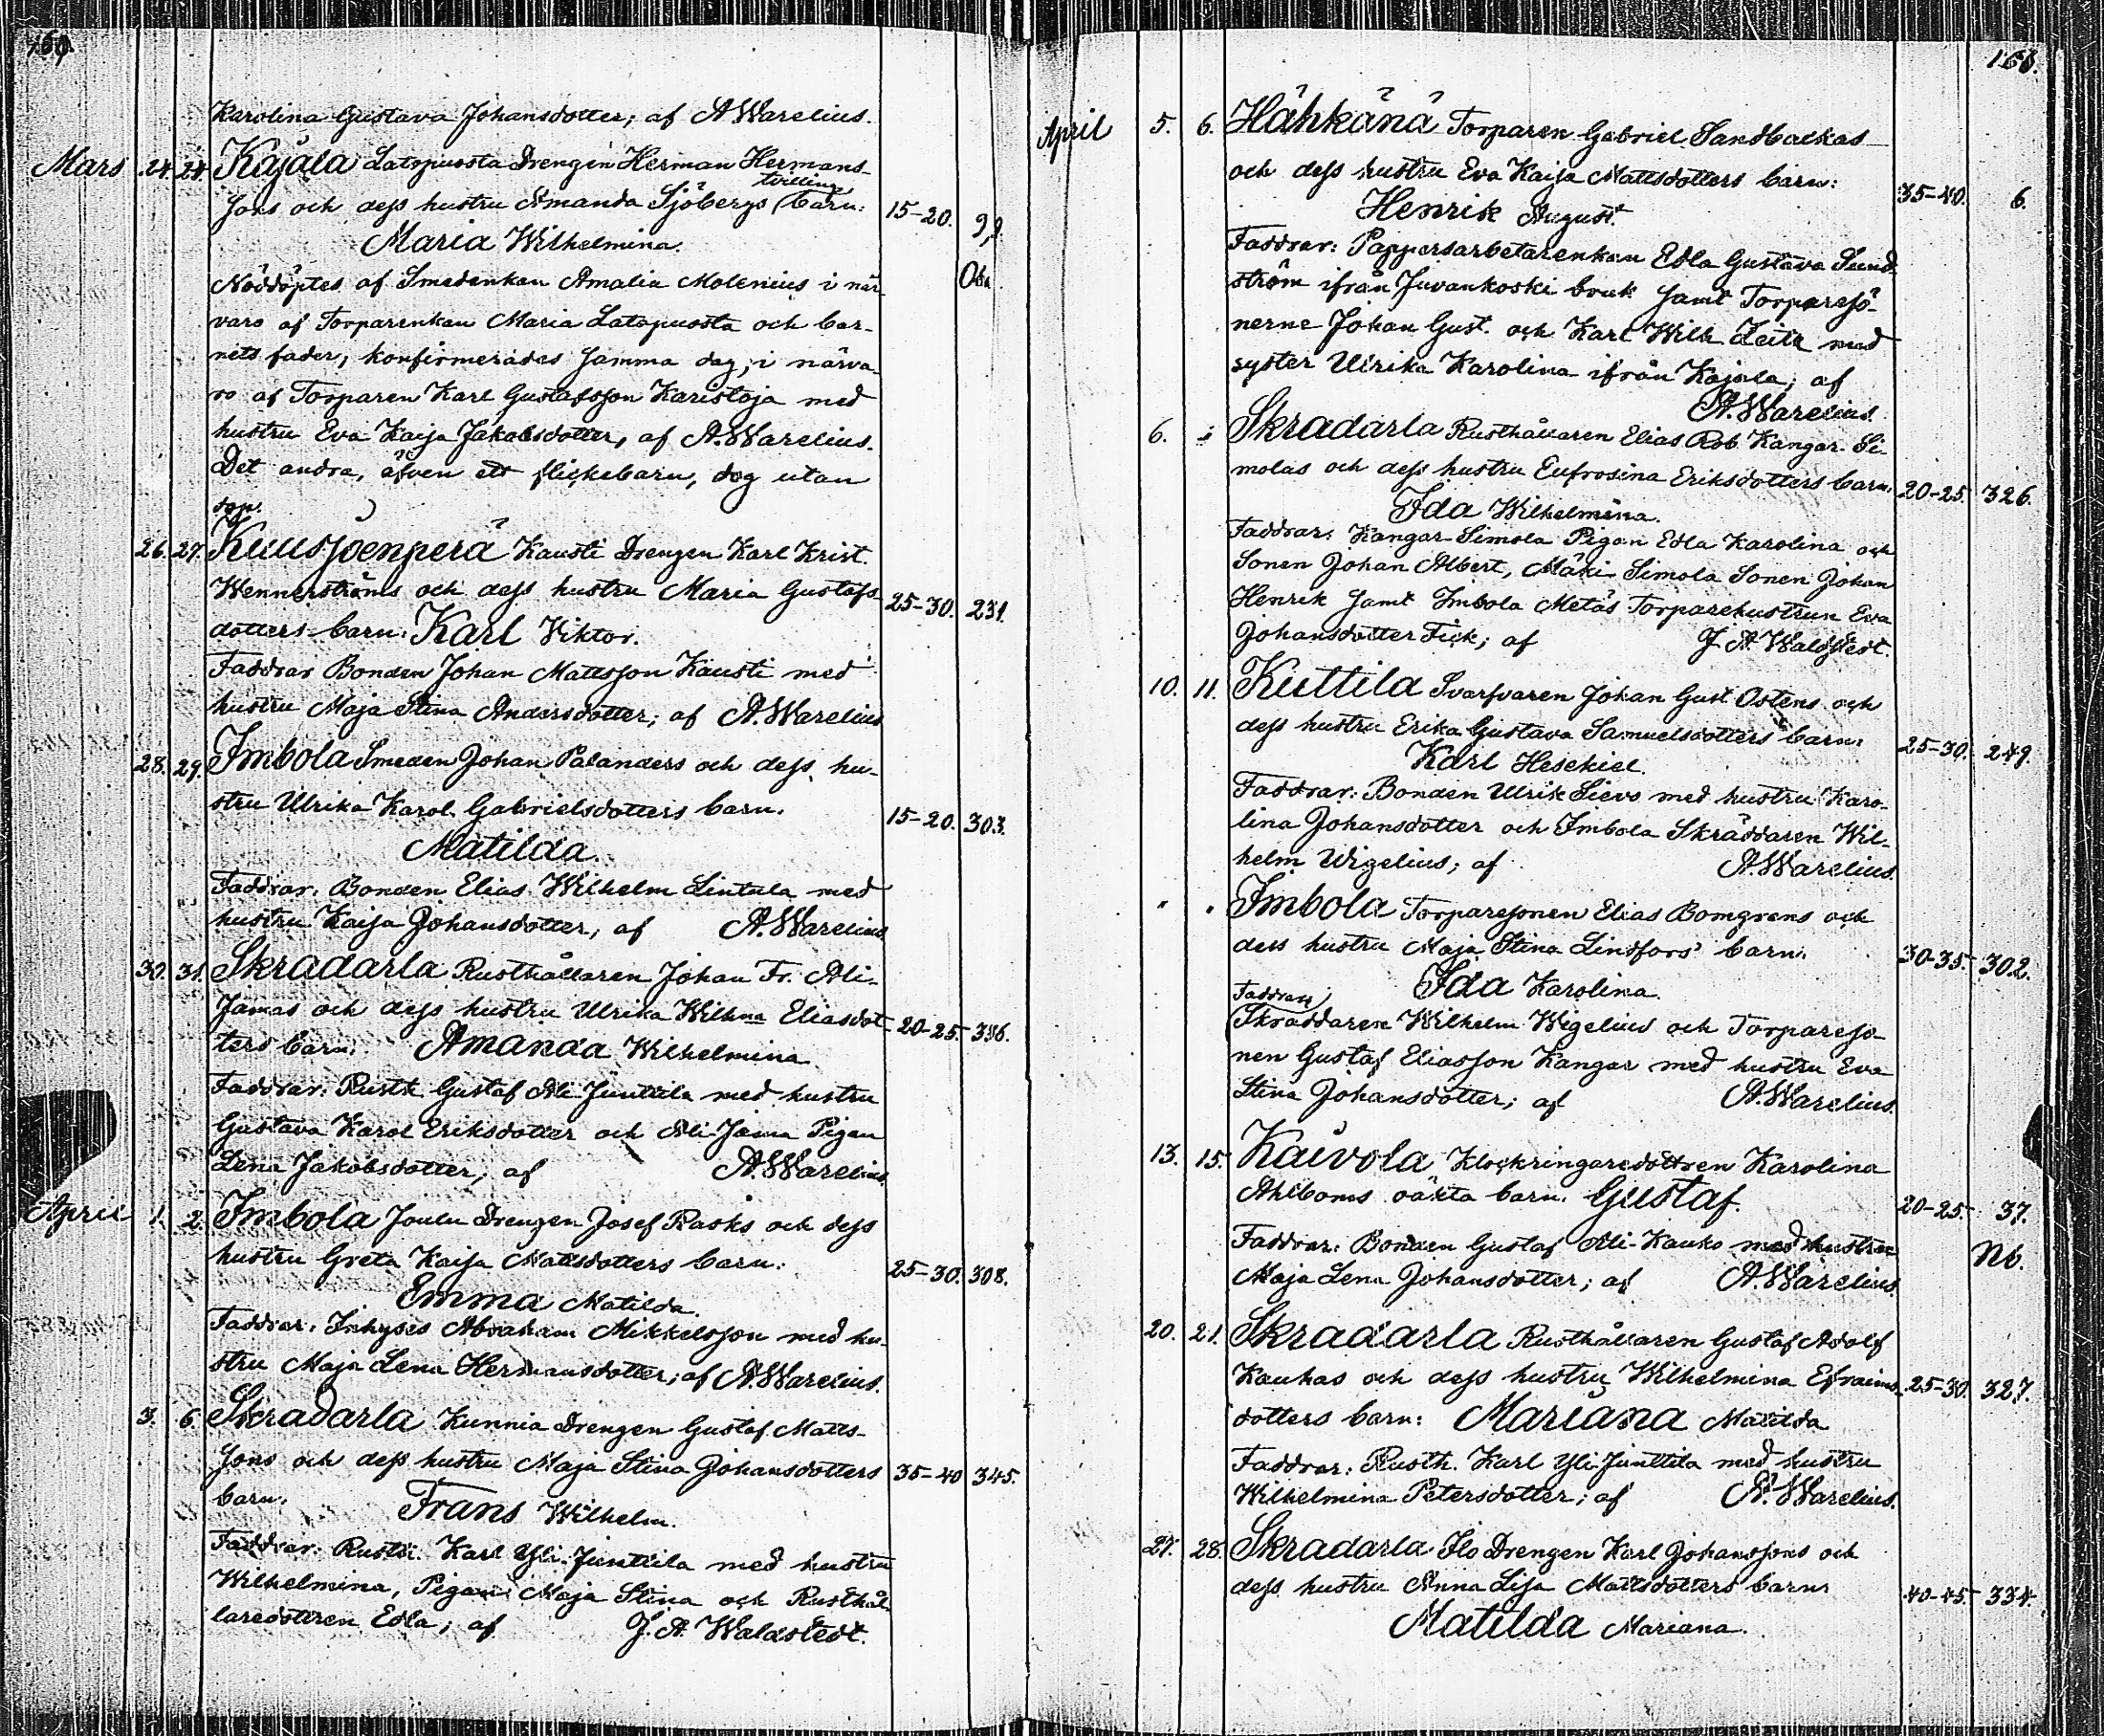 Karolina Gustava Johansdotter; af A Warelius.
Mars 24. 24. Kajala Latopuosta Drengen Herman Hermans-
tvilling
sons och dess hustru Amanda Sjöbergs barn: 15-20. 9,8.
Maria Wilhelmina.
Nöddöptes af Smedenkan Amalia Molenius i när-
varo af Torparenkan Maria Latopuosta och bar-
nets fader, konfirmerades samma dag, i närva-
ro af Torparen Karl Gustafsson Karistoja med
hustru Eva Kaisa Jakobsdotter, af A. Warelius.
Det andra, äfven ett flickebarn, dog utan
dop.
26. 27. Kuusjoenperä Kausti Drengen Karl Krist.
Wennerströms och dess hustru Maria Gustafs- 25-30. 231.
dotters barn: Karl Viktor.
Faddrar Bonden Johan Mattsson Kausti med
hustru Maja Stina Andersdotter; af A. Warelius
28. 29. Imbola Smeden Johan Palanders och dess hu-
stru Ulrika Karol. Gabrielsdotters barn. 15-20. 303.
Matilda.
Faddrar. Bonden Elias Wilhelm Lintula med
hustru Kaisa Johansdotter, af A. Warelius
30. 31. Skradarla Rusthållaren Johan Fr. Ali-
Jamas och dess hustru Ulrika Wilhna Eliasdot- 20-25. 336.
ters barn. Amanda Wilhelmina
Faddrar. Rusth. Gustaf Ali Junttila med hustru
Gustava Karol Eriksdotter och Ali-Jama Pigan
Lena Jakobsdotter; af A. Warelius.
April 1. 2. Imbola Joulu Drengen Josef Rasks och dess
hustru Greta Kaisa Mattsdotters barn: 25-30. 308.
Emma Matilda.
Faddrar. Inhyses Abraham Mikkelsson med hu-
stru Maja Lena Hermansdotter; af A. Warelius.
3. 6. Skradarla Kunnia Drengen Gustaf Matts-
sons och dess hustru Maja Stina Johansdotters 35-40 345.
barn. Frans Wilhelm.
Faddrar. Rusth. Karl Yli-Junttila med hustru
Wilhelmina, Pigan Maja Stina och Rusthål-
laredottren Edla; af J. A. Waldstedt.
160.
April 5. 6. Hähkänä Torparen Gabriel Sandbackas
och dess hustru Eva Kaisa Mattsdotters barn: 35-40. 6.
Henrik August.
Faddrar: Pappersarbetarenkan Edla Gustava Sund-
ström ifrån Juvankoski bruk samt Torpareso-
nerne Johan Gust. och Karl Wilh. Leita med
syster Ulrika Karolina ifrån Kajala; af
A. Warelius.
6. Skradarla Rusthållaren Elias Rob. Kangar-Si-
molas och dess hustru Eufrosina Eriksdotters barn. 20-25. 326.
Ida Wilhelmina.
Faddrar. Kangar-Simola Pigan Edla Karolina och
Sonen Johan Albert, Mäki-Simola Sonen Johan
Henrik samt Imbola Metäs Torparehustrun Eva
Johansdotter Fick; af J. A. Waldstedt.
10. 11. Kuttila Svarfvaren Johan Gust. Ostens och
dess hustru Erika Gustava Samuelsdotters barn: 25-30. 249.
Karl Hesekiel.
Faddrar: Bonden Ulrik Sievo med hustru Karo-
lina Johansdotter och Imbola Skräddaren Wil-
helm Wigelius; af A. Warelius.
" " Imbola Torparesonen Elias Bomgrens och
dess hustru Maja Stina Lindfors' barn. 30-35. 302.
Ida Karolina.
Faddrar
Skraddaren Wilhelm Wigelius och Torpareso-
nen Gustaf Eliasson Kangar med hustru Eva
Stina Johansdotter; af A. Warelius.
13. 15. Kaivola Klockringaredottren Karolina
Ahlboms oäkta barn. Gustaf. 20-25. 37.
Faddrar: Bonden Gustaf Ali-Kauko med hustru Nb.
Maja Lena Johansdotter; af A. Warelius.
20. 21. Skradarla Rusthållaren Gustaf Adolf
Kaukas och dess hustru Wilhelmina Efraims- 25-30. 327.
dotters barn: Mariana Matilda
Faddrar: Rusth. Karl Yli-Junttila med hustru
Wilhelmina Petersdotter; af A. Warelius.
27. 28. Skradarla Ilo Drengen Karl Johanssons och
dess hustru Anna Lisa Mattsdotters barn 40-45. 334.
Matilda Mariana.